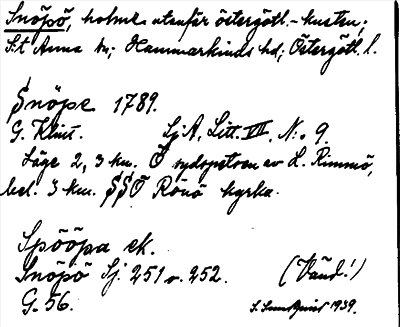 Snöpö, holme utanför östergötl.-kusten;
S:t Anna sn; Hammarkinds hd; Östergötl. l.
Snöpe 1789.
G. Klint. Sj A, Litt. VII, N:o 9.
Läge 2,3 km. Ö sydspetsen av L. Rimmö,
bel. 3 km. SSÖ Rönö kyrka.
Spööpa ek.
Snöpö Sj. 251 o. 252. (Vänd!)
G. 56. S. Sundquist 1939.